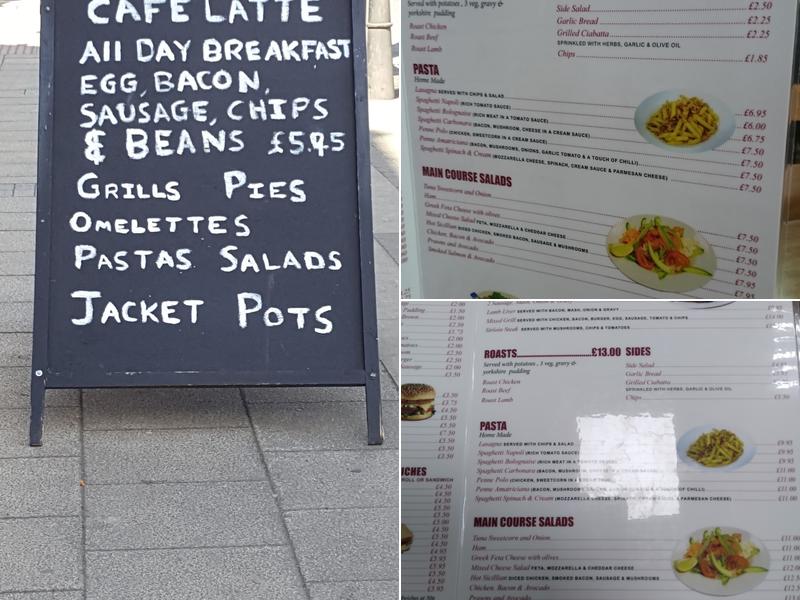 CAFE LATTE
All DAY BREAKFAST
EGG, BACON,
SAUSAGE, CHIPS
& BEANS £5.95
GRILLS PIES
OMELETTES
PASTAS SALADS
JACKET POTS
Served with potatoes, 3 veg, gravy &
yorkshire pudding
Roast Chicken
Roast Beef
Roast Lamb
Side Salad £2.50
Garlic Bread £2.25
Grilled Ciabatta £2.25
SPRINKLED WITH HERBS, GARLIC & OLIVE OIL
Chips £1.85
PASTA
Home Made
Lasagna SERVED WITH CHIPS & SALAD £6.95
Spaghetti Napoli (RICH TOMATO SAUCE) £6.00
Spaghetti Bolognaise (RICH MEAT IN A TOMATO SAUCE) £6.75
Spaghetti Carbonara (BACON, MUSHROOM, CHEESE IN A CREAM SAUCE) £7.50
Penne Polo (CHICKEN, SWEETCORN IN A CREAM SAUCE) £7.50
Penne Amatriciana (BACON, MUSHROOMS, ONIONS, GARLIC TOMATO & A TOUCH OF CHILLI) £7.50
Spaghetti Spinach & Cream (MOZZARELLA CHEESE, SPINACH, CREAM SAUCE & PARMESAN CHEESE) £7.50
MAIN COURSE SALADS
Tuna Sweetcorn and Onion £7.50
Ham £7.50
Greek Feta Cheese with olives £7.50
Mixed Cheese Salad FETA, MOZZARELLA & CHEDDAR CHEESE £7.50
Hot Sicillian DICED CHICKEN, SMOKED BACON, SAUSAGE & MUSHROOMS £7.95
Chicken, Bacon & Avocado £7.95
Prawns and Avocado
Smoked Salmon & Avocado
Lamb Liver SERVED WITH BACON, MASH, ONION & GRAVY
Mixed Grill SERVED WITH CHICKEN, BACON, BURGER, EGG, SAUSAGE, TOMATO & CHIPS
Sirloin Steak SERVED WITH MUSHROOMS, CHIPS & TOMATOES
ROASTS £13.00
Served with potatoes, 3 veg, gravy &
yorkshire pudding
Roast Chicken
Roast Beef
Roast Lamb
SIDES
Side Salad
Garlic Bread
Grilled Ciabatta
SPRINKLED WITH HERBS, GARLIC & OLIVE OIL
Chips
PASTA
Home Made
Lasagna SERVED WITH CHIPS & SALAD £9.95
Spaghetti Napoli (RICH TOMATO SAUCE) £9.95
Spaghetti Bolognaise (RICH MEAT IN A £9.95
Spaghetti Carbonara (BACON, £11.00
Penne Polo (CHICKEN, SWEETCORN £11.00
Penne Amatriciana (BACON, £11.00
Spaghetti Spinach & Cream (MOZZARELLA CHEESE, & PARMESAN CHEESE) £11.00
MAIN COURSE SALADS
Tuna Sweetcorn and Onion
Ham
Greek Feta Cheese with olives
Mixed Cheese Salad FETA, MOZZARELLA & CHEDDAR CHEESE
Hot Sicillian DICED CHICKEN, SMOKED BACON, SAUSAGE & MUSHROOMS
Chicken, Bacon & Avocado
Prawns and Avocado